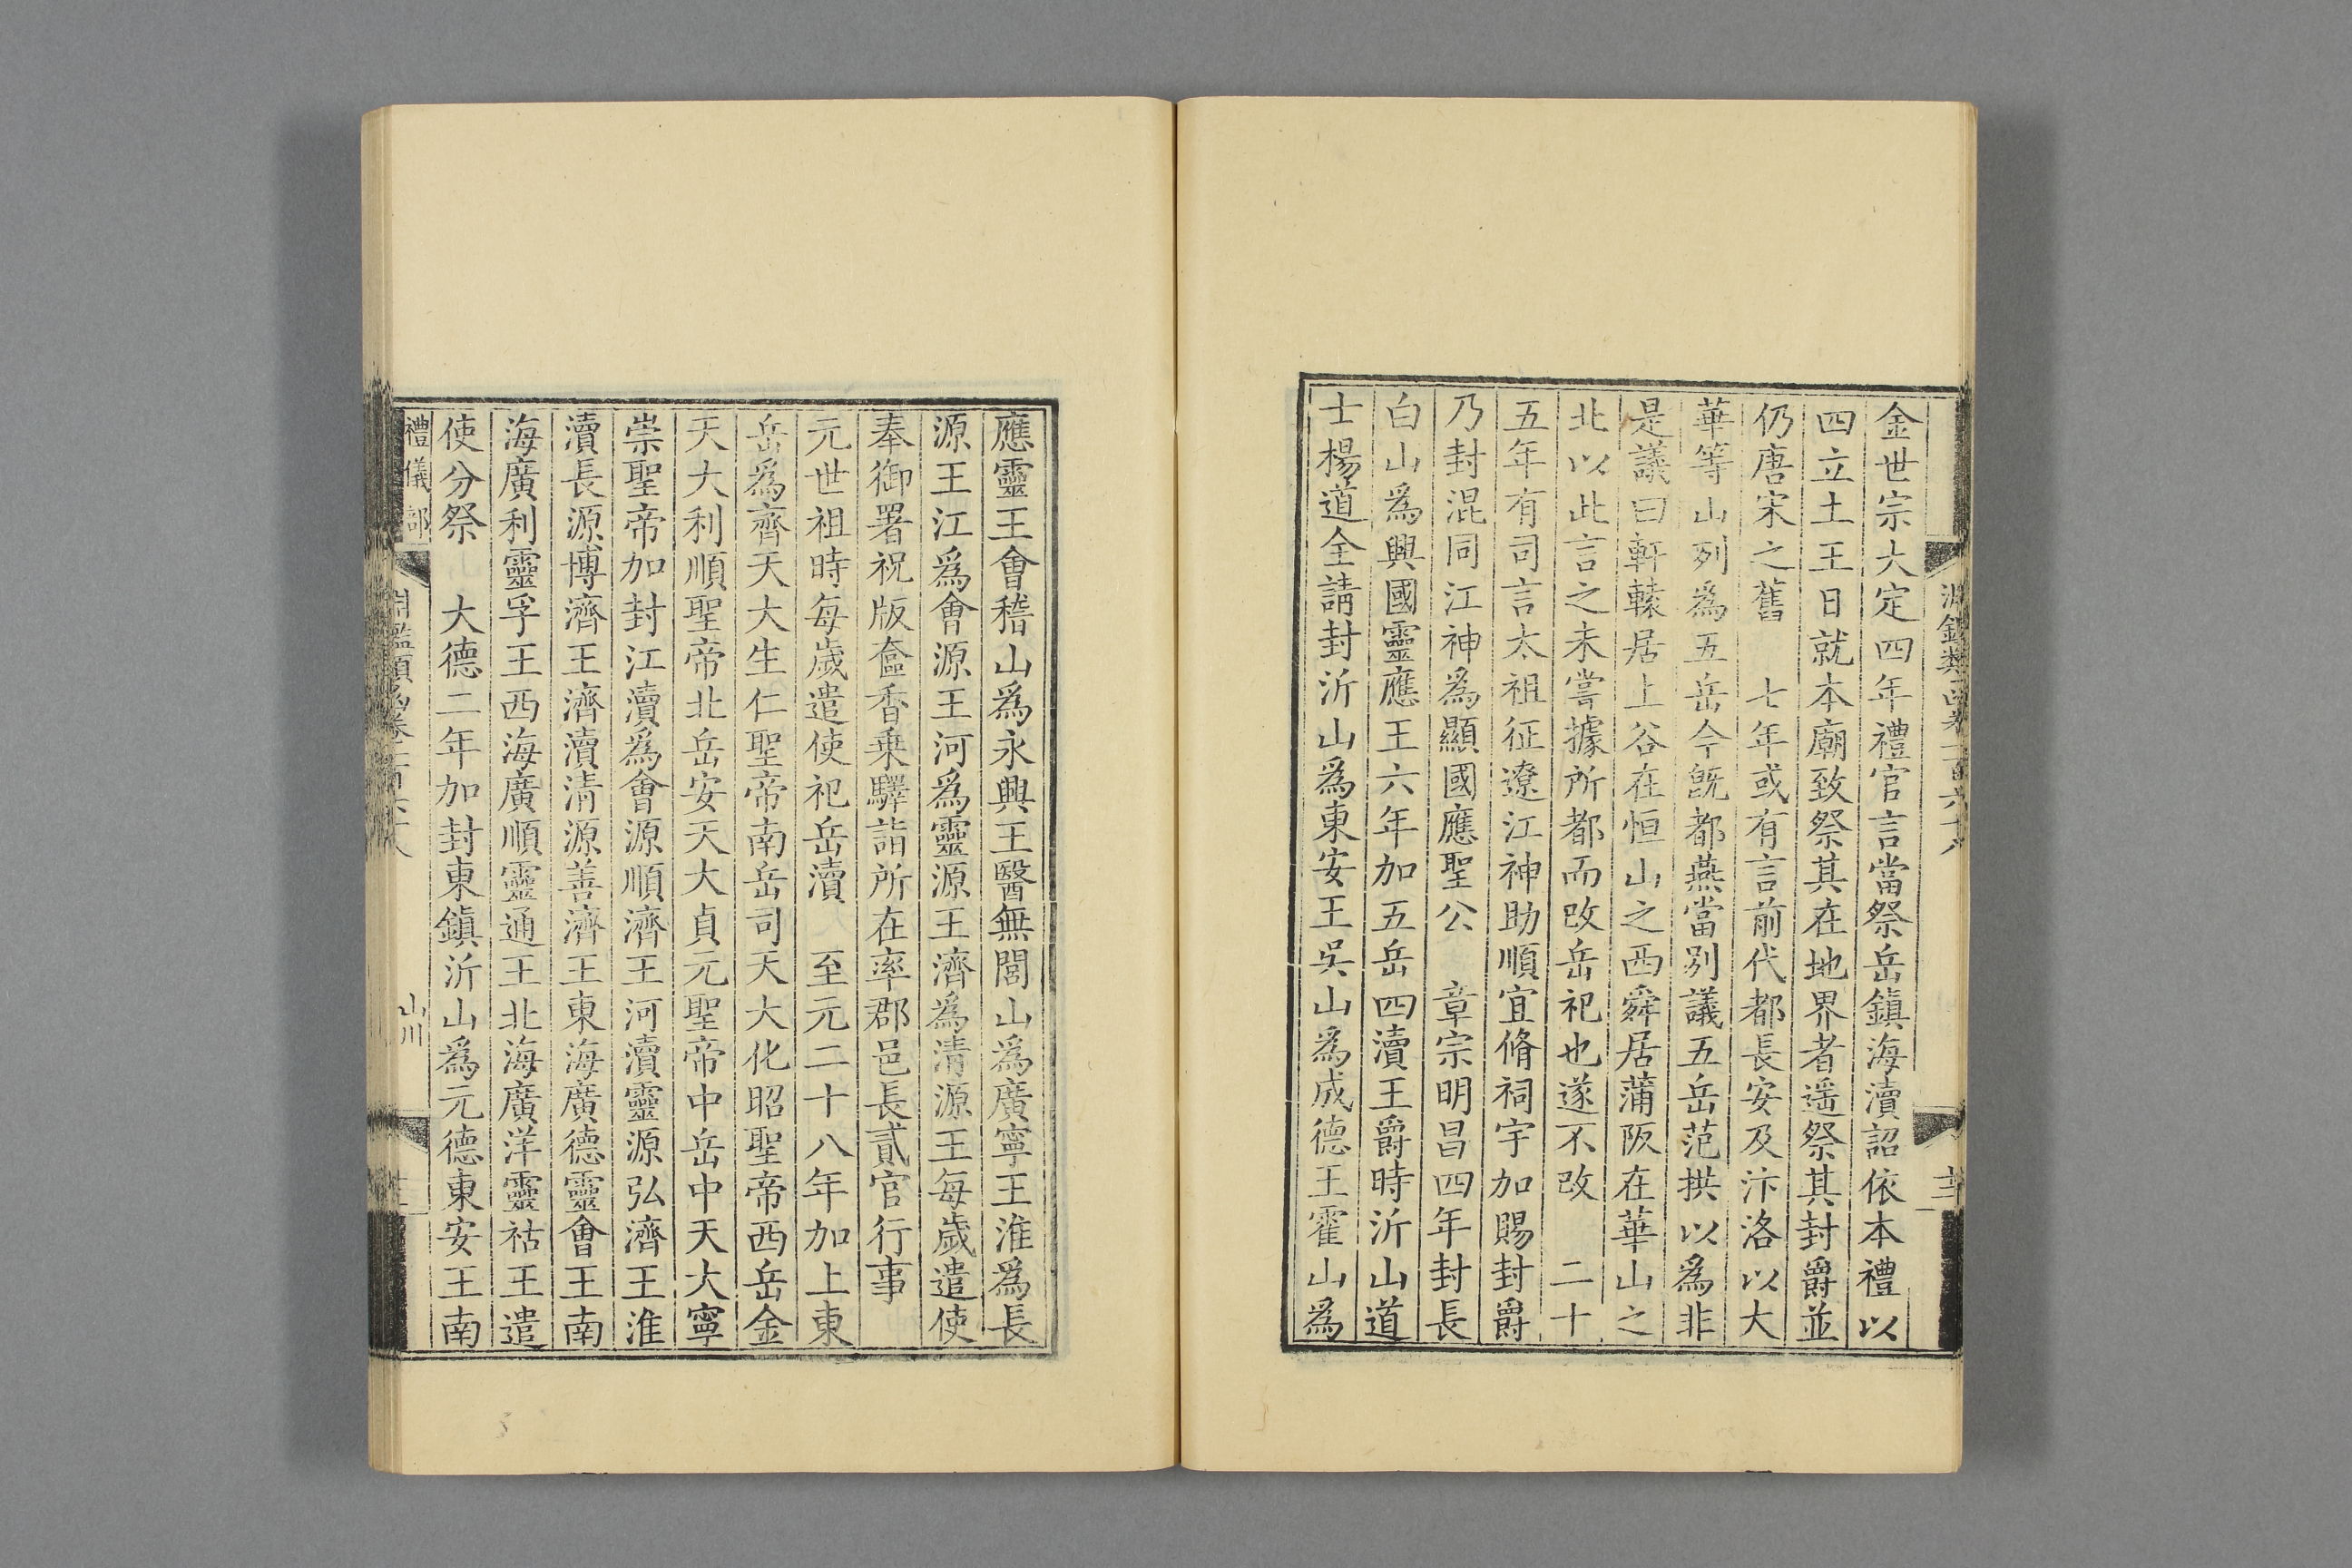 金世宗大定四年禮官言當祭岳鎮海瀆詔依本禮以
四立土王日就本廟致祭其在地界者遥祭其封爵並
仍唐宋之舊　七年或有言前代都長安及汴洛以大
華等山列爲五岳今旣都燕當別議五岳范拱以爲非
是議曰軒轅居上谷在恒山之西舜居蒲阪在華山之
北以此言之未嘗據所都而改岳祀也遂不改　二十
五年有司言太祖征遼江神助順宜脩祠宇加賜封爵
乃封混同江神爲顯國應聖公　章宗明昌四年封長
白山爲興國靈應王六年加五岳四瀆王爵時沂山道
士楊道全請封沂山爲東安王吳山爲成德王霍山爲
應靈王會稽山爲永興王醫無閭山爲廣寧王淮爲長
源王江爲會源王河爲靈源王濟爲清源王每歲遣使
奉御署祝版奩香乗驛詣所在率郡邑長貳官行事
元世祖時每歲遣使祀岳瀆　至元二十八年加上東
岳爲齊天大生仁聖帝南岳司天大化昭聖帝西岳金
天大利順聖帝北岳安天大貞元聖帝中岳中天大寧
崇聖帝加封江瀆爲會源順濟王河瀆靈源弘濟王淮
瀆長源博濟王濟瀆清源善濟王東海廣德靈會王南
海廣利靈孚王西海廣順靈通王北海廣洋靈祜王遣
使分祭　大德二年加封東鎮沂山爲元德東安王南
禮儀部
山川